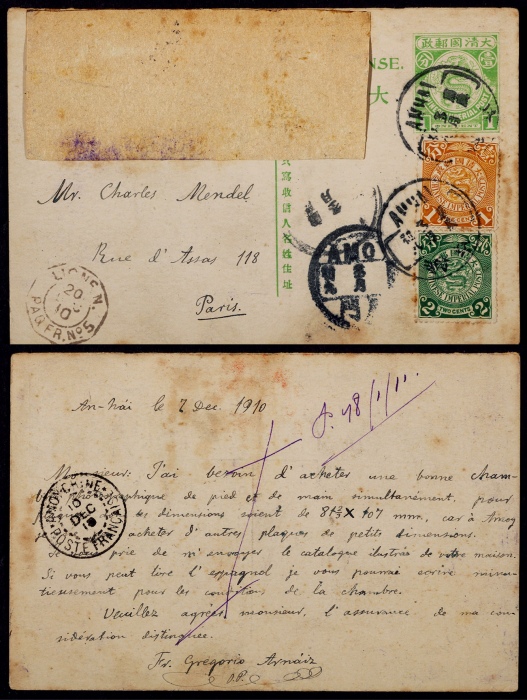 大清國郵政
壹
分
NSE.
大
ANHAI
1 CENT
CHINESE IMPERIAL POST
2 TWO CENTS 2
ANHAI
寫收信人名姓住址
AMO
Mr. Charles Mendel
Rue d'Assas 118
Paris.
LIGNE N.
20
10
PAQ. FR. Nº 5
An-hai le 7 Dec. 1910
1/11.
Monsieur: J'ai besoin d'acheter une bonne cham-
photographique de pied et de main simultanément, pour
dimensions soient de 8½ X 107 mm, car à Amoy
acheter d'autres plaques de petits dimensions.
prie de m'envoyer le catalogue ilustrée de votre maison.
Si vous peut lire l'espagnol je vous pourrai ecrire minu-
tieusement pour les conditions de la chambre.
Veuillez agréer monsieur, l'assurance de ma con-
sidération distinguée.
Fr. Gregorio Arnáiz
O.P.
CHINE
10
DEC
10
POSTE FRANCAISE